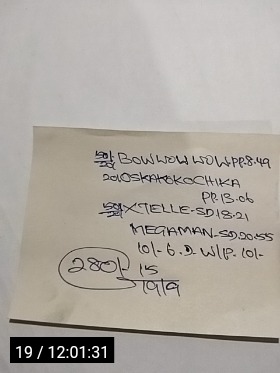 BOWWOWWOW.PP.8.49
201 OSKAKOKOCHIKA
PP.13.06
XTELLE-SD.18.21
MEGAMAN-SD.20.55
10/- 6.D.W/P.10/-
280/- 15
19/9
19 / 12:01:31